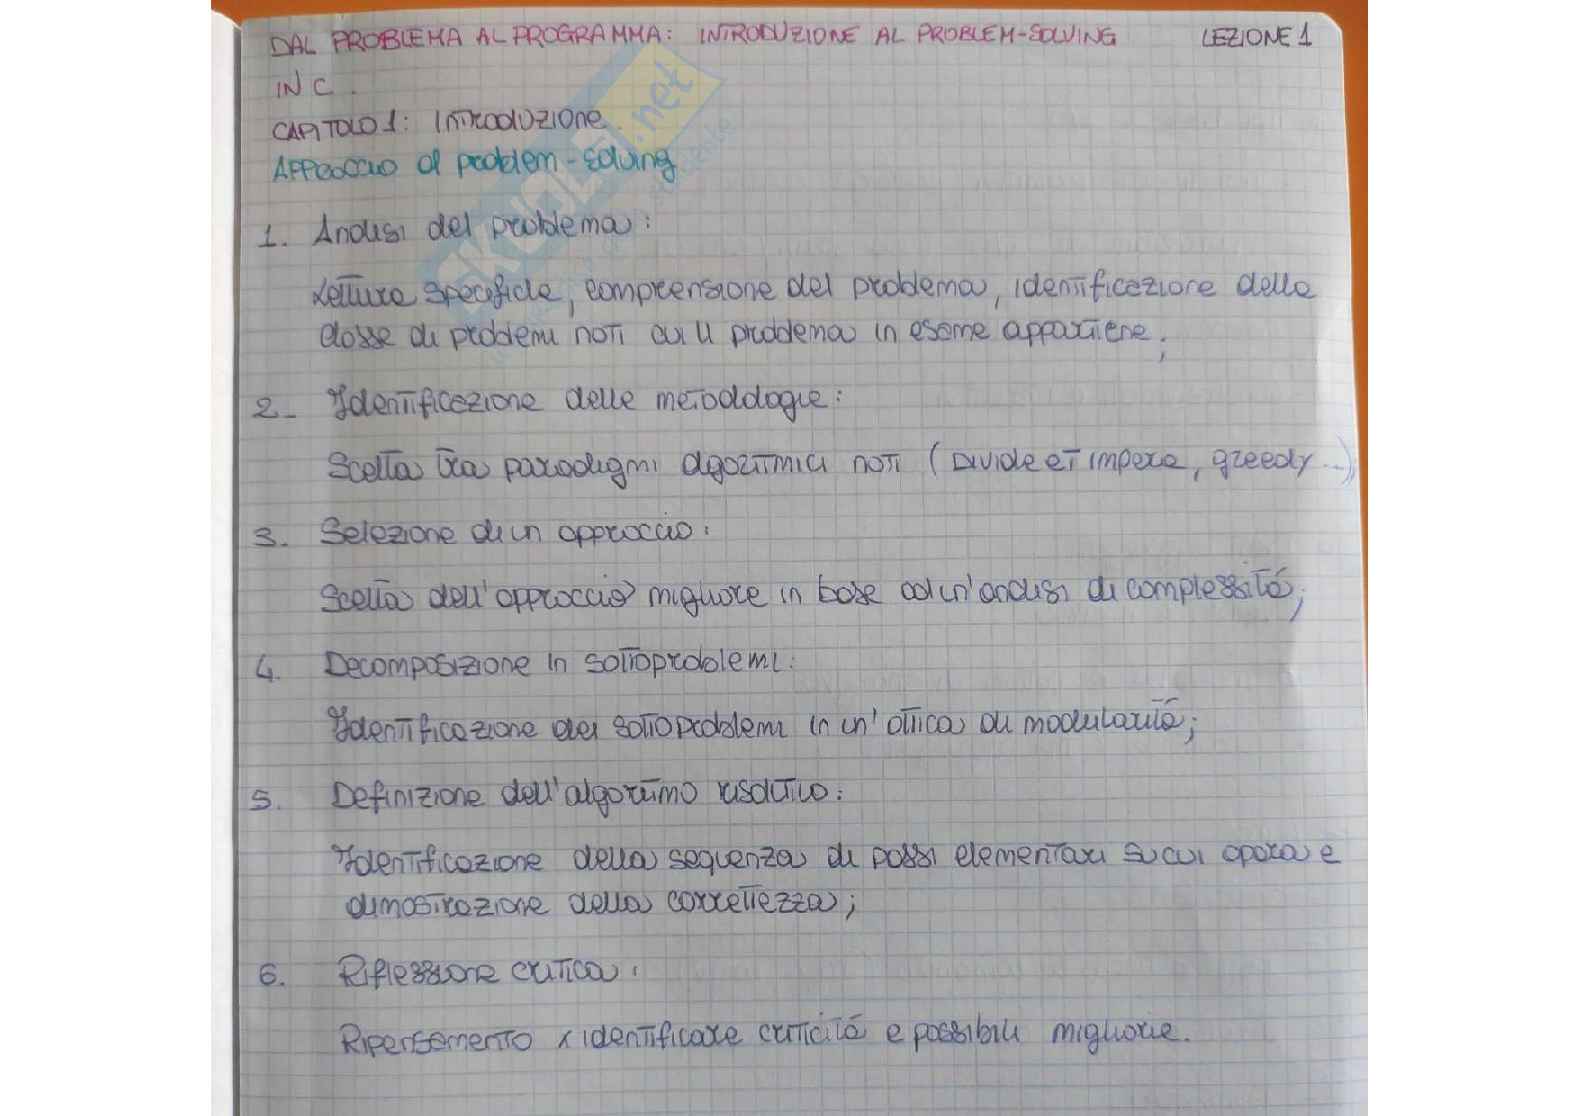 DAL PROBLEMA AL PROGRAMMA: INTRODUZIONE AL PROBLEM-SOLVING LEZIONE 1
IN C.
CAPITOLO 1: INTRODUZIONE.
APPROCCIO al problem-solving
1. Analisi del problema:
Lettura specifiche, comprensione del problema, identificazione della
classe di problemi noti cui il problema in esame appartiene;
2- Identificazione delle metodologie:
Scelta tra paradigmi algoritmici noti (Divide et impera, greedy...);
3. Selezione di un approccio:
Scelta dell'approccio migliore in base ad un'analisi di complessità;
4. Decomposizione in sottoproblemi:
Identificazione dei sottoproblemi in un'ottica di modularità;
5. Definizione dell'algoritmo risolutivo:
Identificazione della sequenza di passi elementari su cui opera e
dimostrazione della correttezza;
6. Riflessione critica:
Ripensamento x identificare criticità e possibili migliorie.
SKUOLA.net